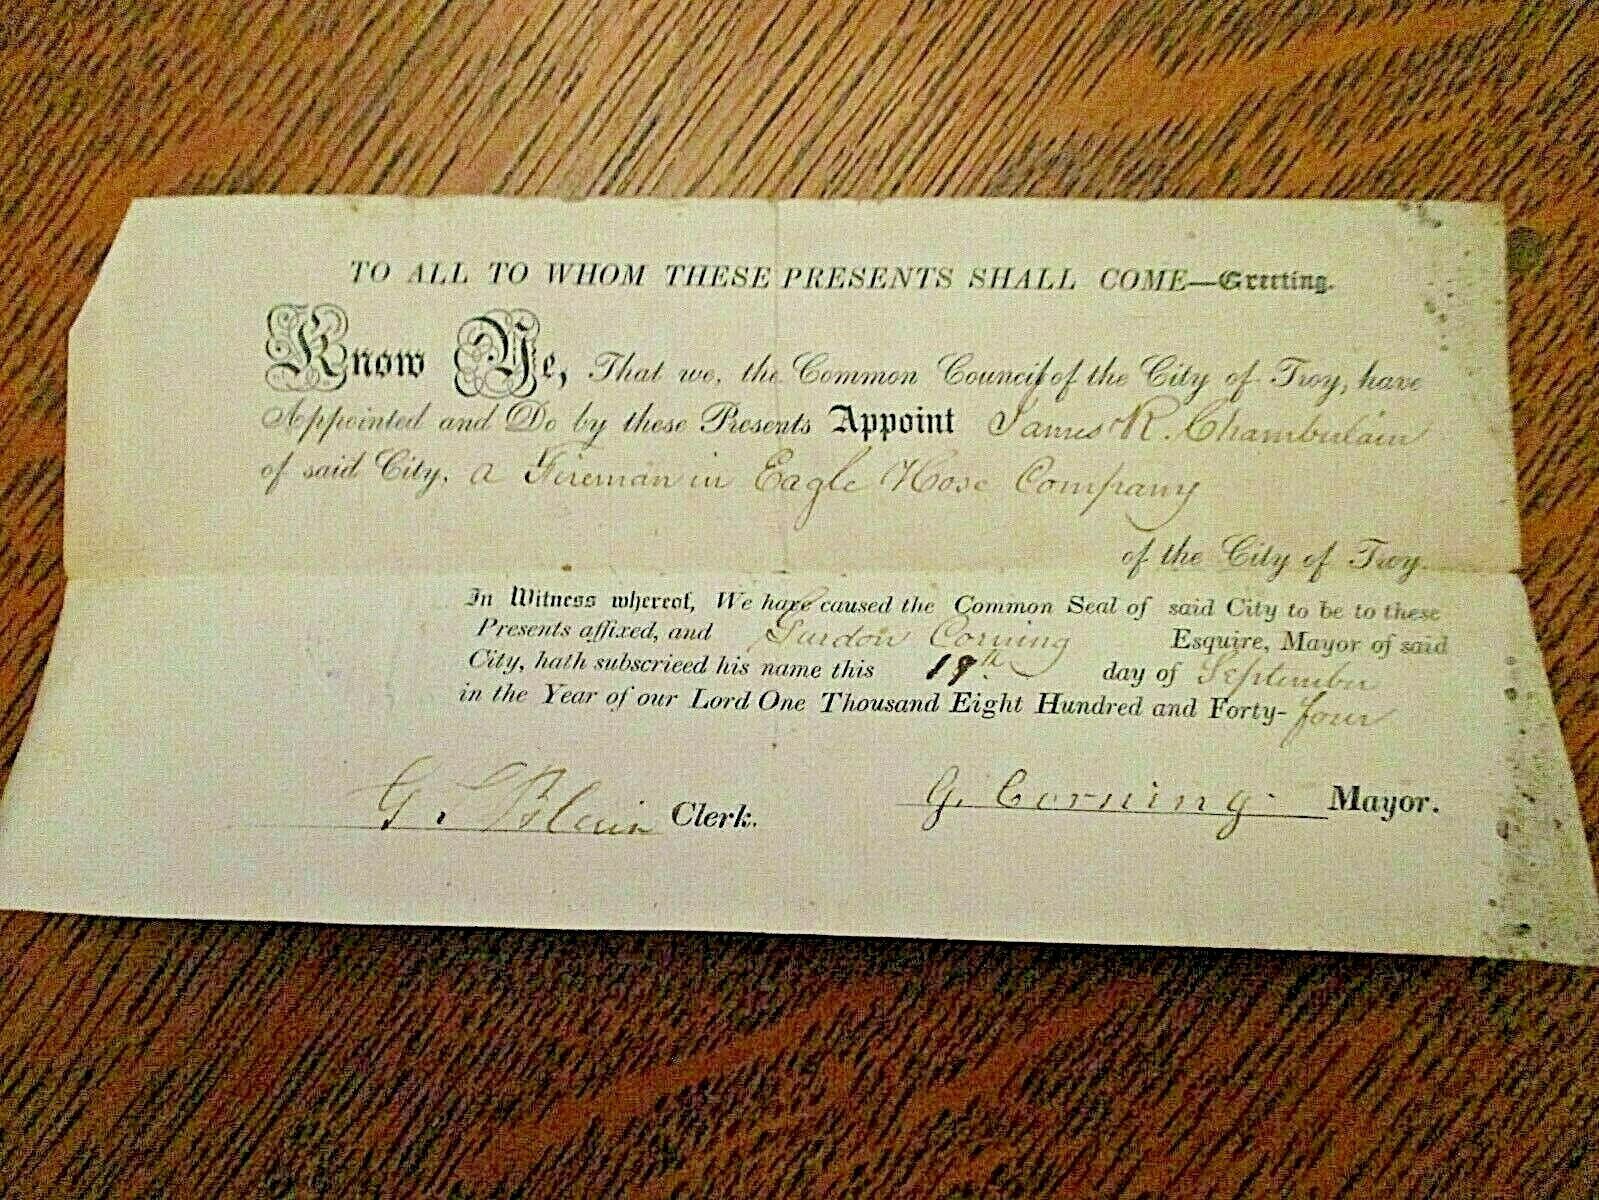 TO ALL TO WHOM THESE PRESENTS SHALL COME—Greeting.
Know Ye, That we, the Common Council of the City of Troy, have
Appointed and Do by these Presents Appoint James R. Chamberlain
of said City, a Fireman in Eagle Hose Company
of the City of Troy.
In Witness whereof, We have caused the Common Seal of said City to be to these
Presents affixed, and Gurdon Corning Esquire, Mayor of said
City, hath subscrieed his name this 19th day of September
in the Year of our Lord One Thousand Eight Hundred and Forty-four
G. Blair Clerk.
G. Corning Mayor.